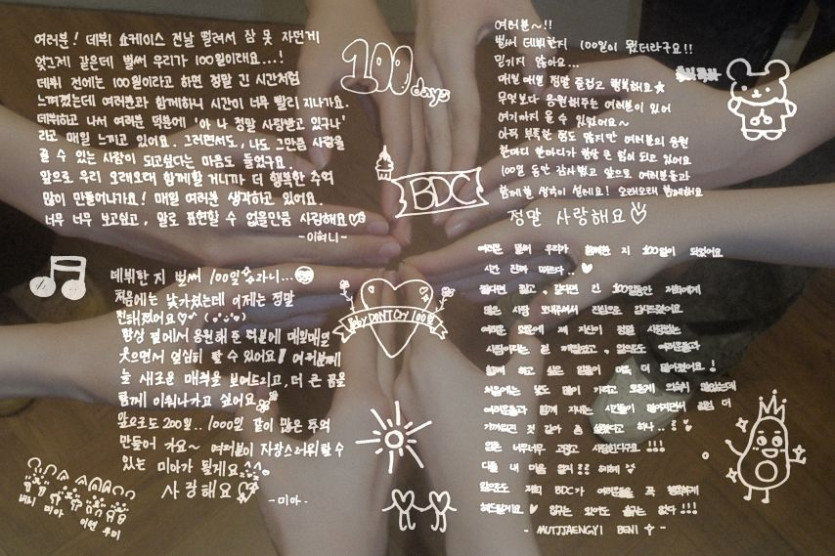 여러분! 데뷔 쇼케이스 전날 떨려서 잠 못 자던게
엊그제 같은데 벌써 우리가 100일이래요...!
데뷔 전에는 100일이라고 하면 정말 긴 시간처럼
느껴졌는데 여러분과 함께하니 시간이 너무 빨리 지나가요.
데뷔하고 나서 여러분 덕분에 '아 나 정말 사랑받고 있구나'
라고 매일 느끼고 있어요. 그러면서도, 나도 그만큼 사랑을
줄 수 있는 사람이 되고싶다는 마음도 들었구요..
앞으로 우리 오래오래 함께할 거니까 더 행복한 추억
많이 만들어나가요! 매일 여러분 생각하고 있어요.
너무 너무 보고싶고, 말로 표현할 수 없을만큼 사랑해요♡
100 days
BDC
여러분~!!
벌써 데뷔한지 100일이 됐더라구요!!
믿기지 않아요...
매일 매일 정말 즐겁고 행복해요★
무엇보다 응원해주는 여러분이 있어
여기까지 올 수 있었어요~
아직 부족한 점도 많지만 여러분의 응원
한마디 한마디가 항상 큰 힘이 되고 있어요
100일 동안 감사했고 앞으로 여러분들과
함께할 생각이 설레요! 오래오래 함께해요
정말 사랑해요♡
데뷔한 지 벌써 100일 라니...
처음에는 낯가렸는데 이제는 정말
친해졌어요♡
항상 옆에서 응원해 준 덕분에 매일매일
웃으면서 열심히 할 수 있어요! 여러분께
늘 새로운 매력을 보여드리고, 더 큰 꿈을
함께 이뤄나가고 싶어요
앞으로도 200일.. 1000일 같이 많은 추억
만들어 가요~ 여러분이 자랑스러워할 수
있는 미아가 될게요
사랑해요♡
-미아-
100일
여러분 벌써 우리가 함께한 지 100일이 되었어요
시간 진짜 빠르다.. ♥
100일동안 저희에게
많은 사랑 보내주셔서 진심으로 감사드려요
여러분 덕분에 제 자신이 정말 사랑받는
사람이라는 걸 깨달았고, 앞으로도 여러분들과
함께 하고 싶은 일들이 더욱 더 많아졌어요!
여러분들과 함께 지내는 시간들이 많아지면서
!!!
앞으로도 저희 BDC가 여러분을 꼭 행복하게
해드릴게요 ♥ !!!
- MUTJJAENGYI BENI -